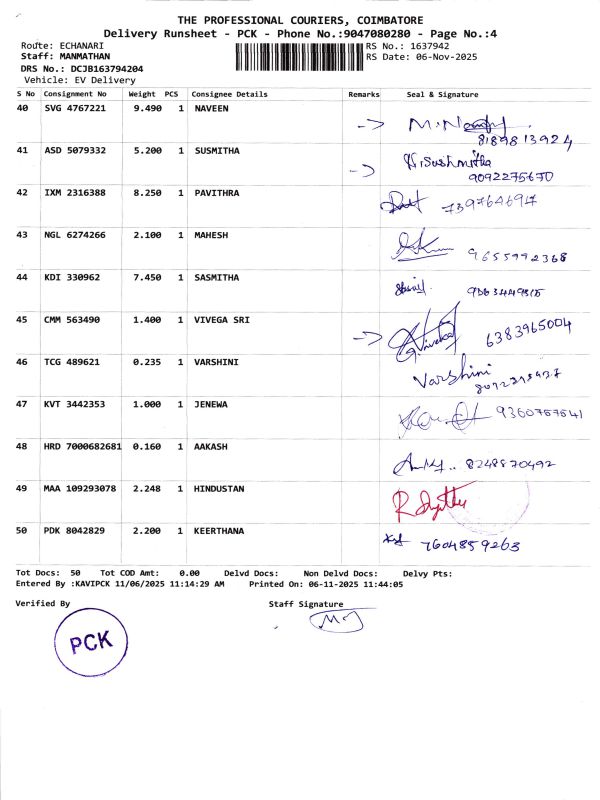 THE PROFESSIONAL COURIERS, COIMBATORE
Delivery Runsheet - PCK - Phone No.:9047080280 - Page No.:4
Route: ECHANARI RS No.: 1637942
Staff: MANMATHAN RS Date: 06-Nov-2025
DRS No.: DCJB163794204
Vehicle: EV Delivery
S No Consignment No Weight PCS Consignee Details Remarks Seal & Signature
40 SVG 4767221 9.490 1 NAVEEN
8189813924
41 ASD 5079332 5.200 1 SUSMITHA H.Sushmitha
9092275670
42 IXM 2316388 8.250 1 PAVITHRA 7397646917
43 NGL 6274266 2.100 1 MAHESH 9655992368
44 KDI 330962 7.450 1 SASMITHA
45 CMM 563490 1.400 1 VIVEGA SRI 6383965004
46 TCG 489621 0.235 1 VARSHINI Varshini
47 KVT 3442353 1.000 1 JENEWA 9360767541
48 HRD 7000682681 0.160 1 AAKASH 8248870492
49 MAA 109293078 2.248 1 HINDUSTAN
50 PDK 8042829 2.200 1 KEERTHANA 7604859263
Tot Docs: 50 Tot COD Amt: 0.00 Delvd Docs: Non Delvd Docs: Delvy Pts:
Entered By :KAVIPCK 11/06/2025 11:14:29 AM Printed On: 06-11-2025 11:44:05
Verified By Staff Signature
PCK